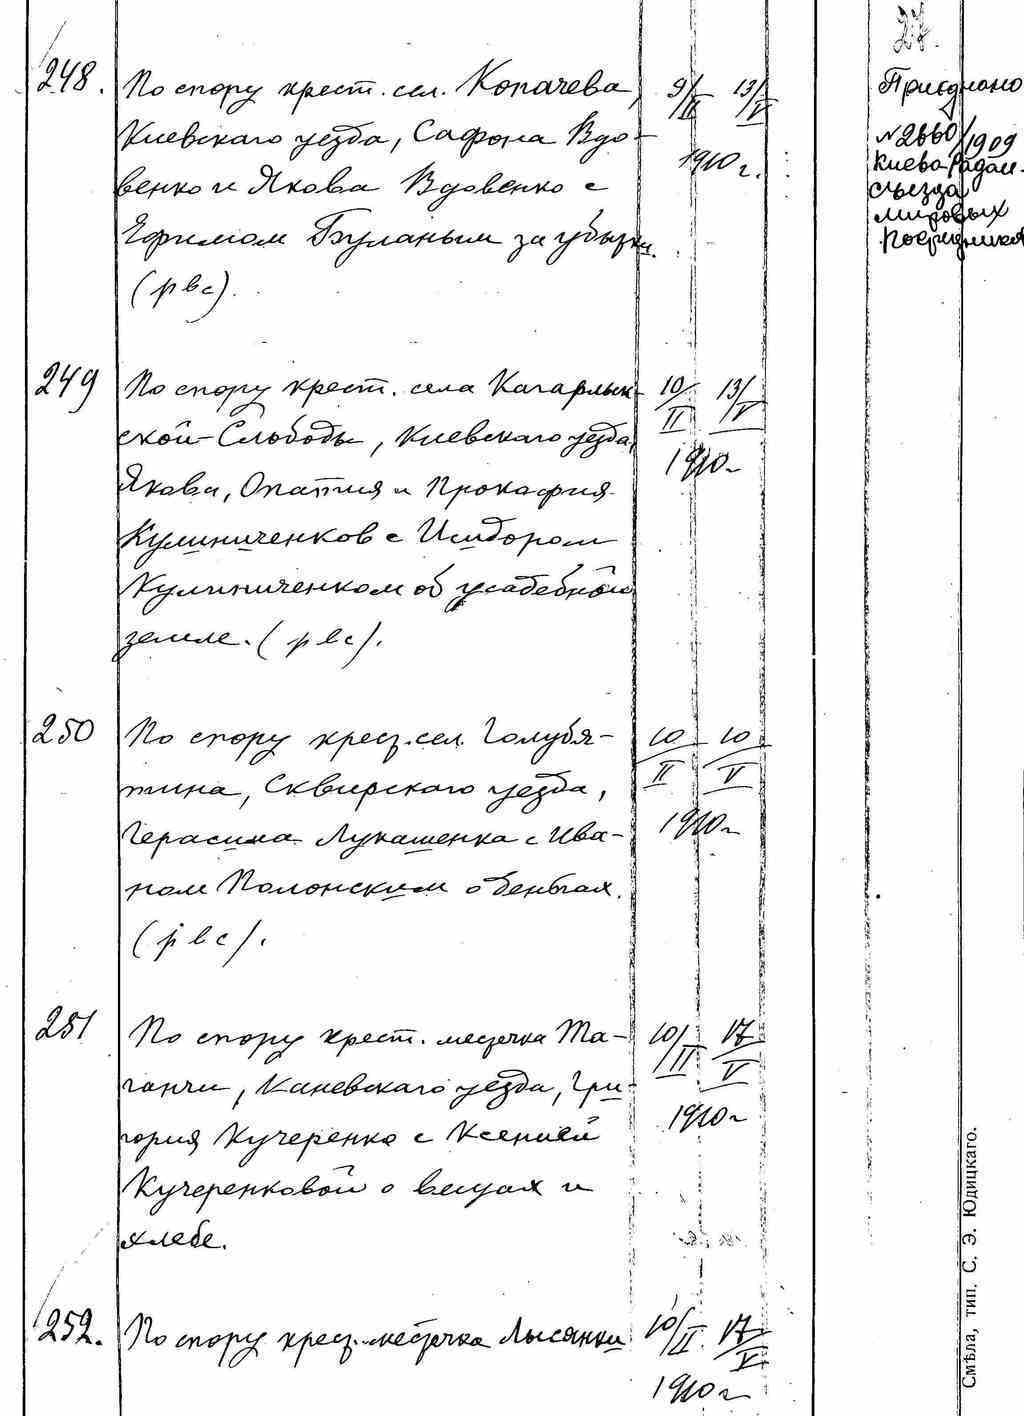 27.
248. По спору крест. сел. Копачева,
Киевскаго уезда, Сафона Вдо-
венко и Якова Вдовенко с
Ефимом Буланым за убытки.
(рвс).
9/II 13/V
1910 г.
Приеднано
№2660/1909
Киево-Радом.
съезда
мировых
посредников
249 По спору крест. села Кагарлык-
ской-Слободы, Киевскаго уезда,
Якова, Опатия и Прокафия
Кулиниченков с Исидором
Кулиниченком об усадебной
земле. (рвс).
10/II 13/V
1910 г
250 По спору крест. сел. Голубя-
тина, Сквирскаго уезда,
Герасима Лукашенка с Ива-
ном Полонским о деньгах.
(рвс).
10/II 10/V
1910 г
251 По спору крест. местечка Та-
ганчи, Каневскаго уезда, Гри-
гория Кучеренко с Ксенией
Кучеренковой о вещах и
хлебе.
10/II 17/V
1910 г
252. По спору крест. местечка Лысянки
10/II 17/V
1910 г
Смѣла, тип. С. Э. Юдицкаго.